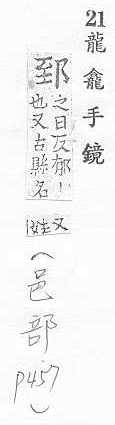 21 龍龕手鏡
郅
之日反郁丨
也又古縣名
又姓
(邑部 p457)